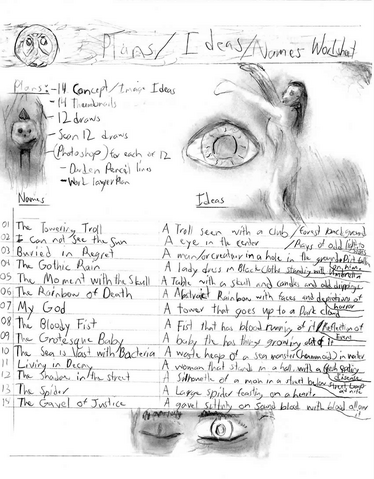 Plans/Ideas/Names Worksheet
Plans:-14 Concept/Image Ideas
-14 Thumbnails
-12 draws
-Scan 12 draws
-(Photoshop) for each of 12
-Darken Pencil lines
-Work layer Plan
Names
Ideas
01 The Towering Troll A Troll seen with a club/forest background
02 I Can not See the Sun A eye in the center /Rays of odd light
03 Buried in Regret A man/creature in a hole in the ground
04 The Gothic Rain A lady dress in Black Clothe standing with
05 The Moment with the Skull A Table with a skull and candle and odd
06 The Rainbow of Death A Abstract Rainbow with faces and of horror
07 My God A tower that goes up to a Dark cloud
08 The Bloody Fist A Fist that has blood running of it/Reflection of
09 The Grotesque Baby A baby the has things growing out of it
10 The Sea is Vast with Bacteria A waste heap of a sea monster in water
11 Living in Decay A woman that stands in a hall with a
12 The Shadow in the Street A Silhouette of a man in a street
13 The Spider A Large spider feasting on a heart
14 The Gavel of Justice A gavel sitting on Sound block with blood